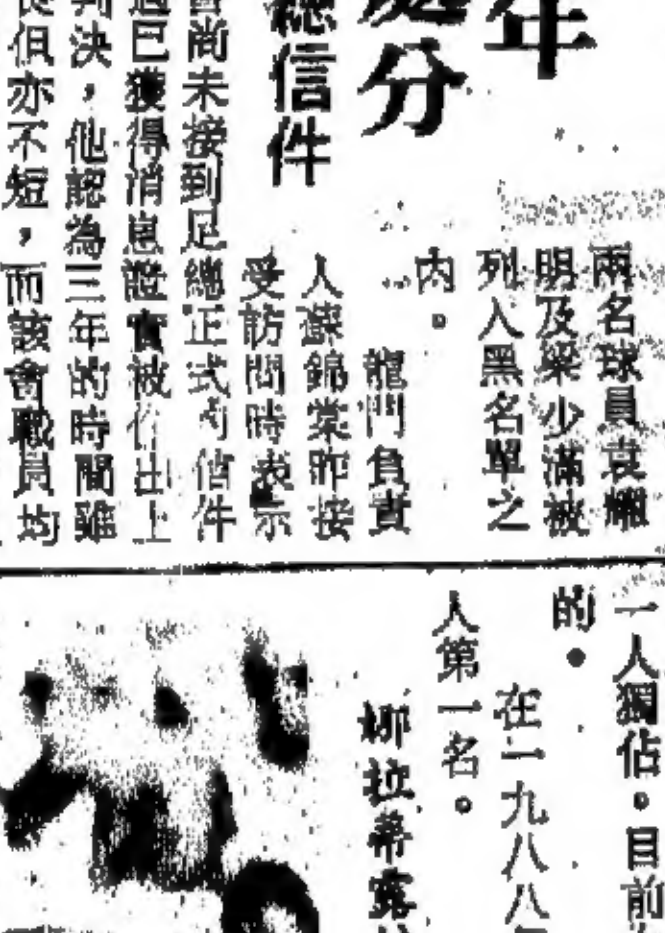 年
處分
總信件
兩名球員袁
明及梁少滿被
列入黑名單之
內。
龍門負責
人蘇錦棠昨接
受訪問時表示
尚未接到足總正式 信件
過已獲得消息證實被作出上
判決，他認為三年的時間雖
長但亦不短，而該會職員均
一人獨佔。目前
的。
在一九八八年
人第一名。
娜拉蒂露